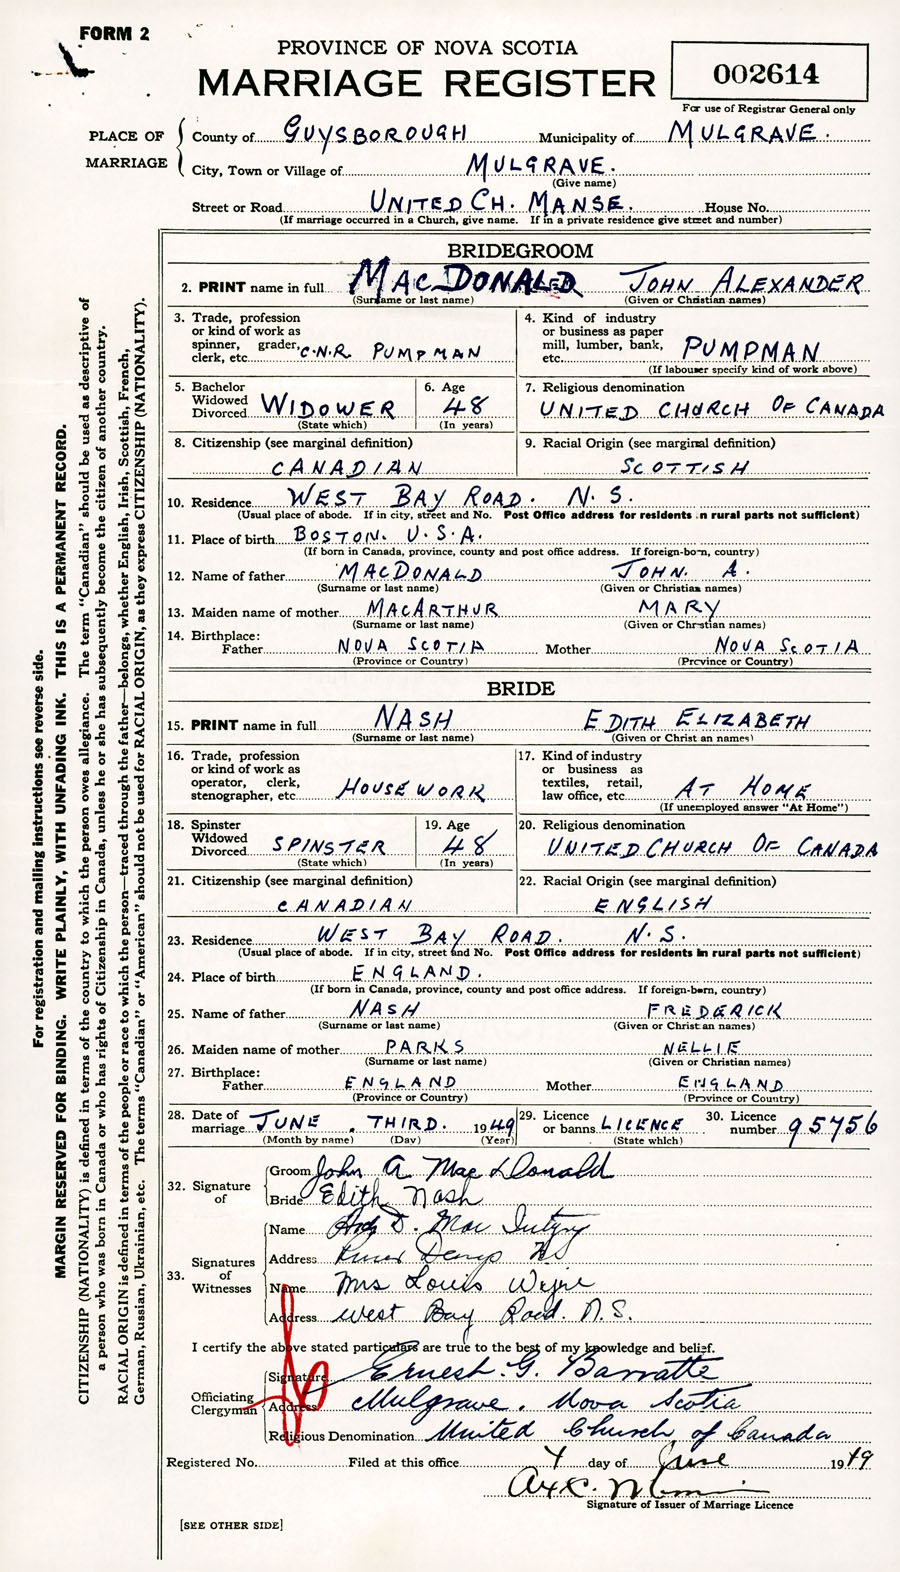 FORM 2
PROVINCE OF NOVA SCOTIA
MARRIAGE REGISTER
002614
For use of Registrar General only
PLACE OF MARRIAGE
County of GUYSBOROUGH Municipality of MULGRAVE.
City, Town or Village of MULGRAVE.
(Give name)
Street or Road UNITED CH. MANSE. House No.
(If marriage occurred in a Church, give name. If in a private residence give street and number)
BRIDEGROOM
2. PRINT name in full MACDONALD JOHN ALEXANDER
(Surname or last name) (Given or Christian names)
3. Trade, profession or kind of work as spinner, grader, clerk, etc. C.N.R. PUMPMAN
4. Kind of industry or business as paper mill, lumber, bank, etc. PUMPMAN
(If labourer specify kind of work above)
5. Bachelor Widowed Divorced WIDOWER
(State which)
6. Age 48
(In years)
7. Religious denomination
UNITED CHURCH OF CANADA
8. Citizenship (see marginal definition)
CANADIAN
9. Racial Origin (see marginal definition)
SCOTTISH
10. Residence WEST BAY ROAD. N.S.
(Usual place of abode. If in city, street and No. Post Office address for residents in rural parts not sufficient)
11. Place of birth BOSTON. U.S.A.
(If born in Canada, province, county and post office address. If foreign-born, country)
12. Name of father MACDONALD JOHN. A.
(Surname or last name) (Given or Christian names)
13. Maiden name of mother MACARTHUR MARY
(Surname or last name) (Given or Christian names)
14. Birthplace:
Father NOVA SCOTIA Mother NOVA SCOTIA
(Province or Country) (Province or Country)
BRIDE
15. PRINT name in full NASH EDITH ELIZABETH
(Surname or last name) (Given or Christian names)
16. Trade, profession or kind of work as operator, clerk, stenographer, etc HOUSEWORK
17. Kind of industry or business as textiles, retail, law office, etc. AT HOME
(If unemployed answer "At Home")
18. Spinster Widowed Divorced SPINSTER
(State which)
19. Age 48
(In years)
20. Religious denomination
UNITED CHURCH OF CANADA
21. Citizenship (see marginal definition)
CANADIAN
22. Racial Origin (see marginal definition)
ENGLISH
23. Residence WEST BAY ROAD. N.S.
(Usual place of abode. If in city, street and No. Post Office address for residents in rural parts not sufficient)
24. Place of birth ENGLAND.
(If born in Canada, province, county and post office address. If foreign-born, country)
25. Name of father NASH FREDERICK
(Surname or last name) (Given or Christian names)
26. Maiden name of mother PARKS NELLIE
(Surname or last name) (Given or Christian names)
27. Birthplace:
Father ENGLAND Mother ENGLAND
(Province or Country) (Province or Country)
28. Date of marriage JUNE. THIRD. 1949
(Month by name) (Day) (Year)
29. Licence or banns LICENCE
(State which)
30. Licence number 95756
32. Signature of
Groom John A MacDonald
Bride Edith Nash
33. Signatures of Witnesses
Name D. Mac
Address River Denys NS
Name Mrs Louis
Address West Bay Road. N.S.
I certify the above stated particulars are true to the best of my knowledge and belief.
Officiating Clergyman
Signature Ernest G. Barratte
Address Mulgrave. Nova Scotia
Religious Denomination United Church of Canada
Registered No. Filed at this office 4 day of June 1949
Signature of Issuer of Marriage Licence
[SEE OTHER SIDE]
For registration and mailing instructions see reverse side.
MARGIN RESERVED FOR BINDING. WRITE PLAINLY, WITH UNFADING INK. THIS IS A PERMANENT RECORD.
CITIZENSHIP (NATIONALITY) is defined in terms of the country to which the person owes allegiance. The term "Canadian" should be used as descriptive of
a person who was born in Canada or who has rights of Citizenship in Canada, unless he or she has subsequently become the citizen of another country.
RACIAL ORIGIN is defined in terms of the people or race to which the person—traced through the father—belongs, whether English, Irish, Scottish, French,
German, Russian, Ukrainian, etc. The terms "Canadian" or "American" should not be used for RACIAL ORIGIN, as they express CITIZENSHIP (NATIONALITY).